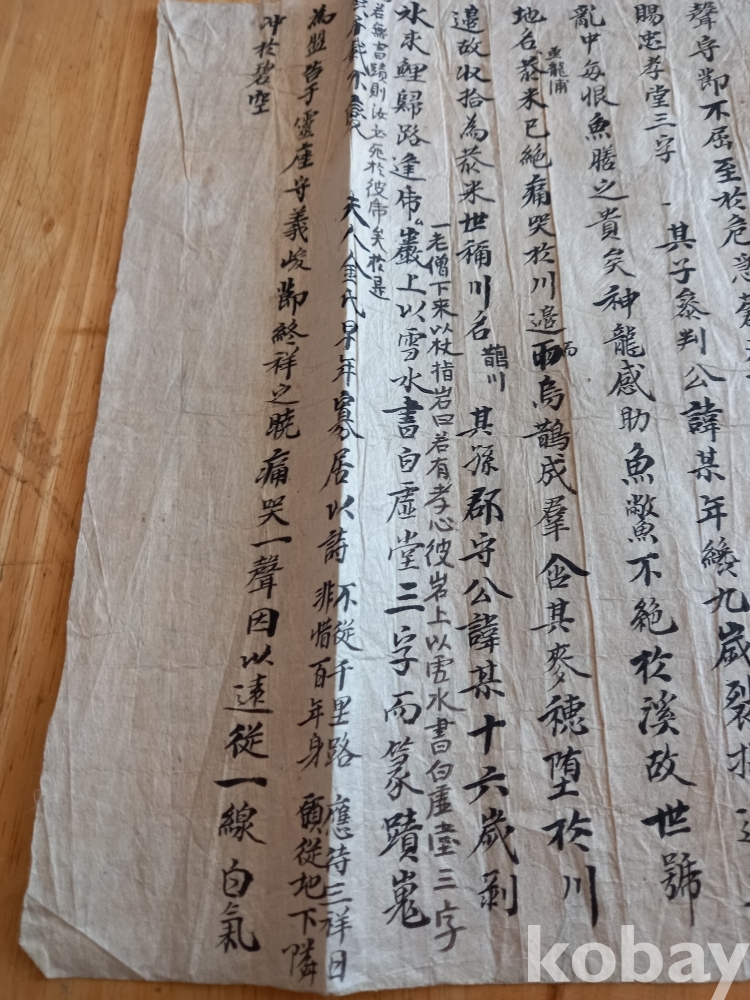 聲守節不屈至於危急
賜忠孝堂三字
其子參判公諱某年纔九歲裂指
亂中每恨魚膳之貴矣神龍感助魚鱉不絶於溪故世號
龍甫
地名菾米已絶痛哭於川邊
烏鵲成羣含其麥穗堕於川
邊故收拾為菾米世稱川名
鵲川
其孫郡守公諱某十六歲剝
一老僧下來以杖指岩曰若有孝心彼岩上以雪水書白虛堂三字
氷來鯉歸路逢
巖上以雪水書白虛堂三字而篆蹟嵬
若無書蹟則汝必死於彼席矣於是
夫人金氏早年寡居以詩
不從千里路 應待三祥日
非惜百年身 願從地下隣
為盟告于靈座守義峻節終祥之曉痛哭一聲因以遠從一線白氣
冲於碧空
kobay